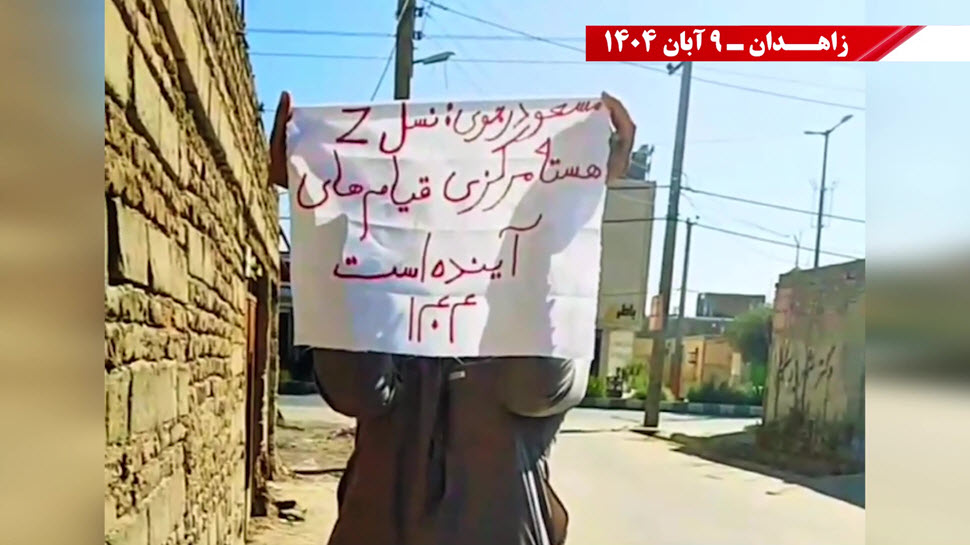 زاهدان - ۹ آبان ۱۴۰۴
مسعود رجوی: نسل Z
هسته مرکزی قیام‌های
آینده است
۱۴۰۴